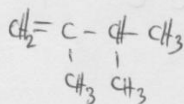 CH₂= C - CH - CH₃
CH₃ CH₃